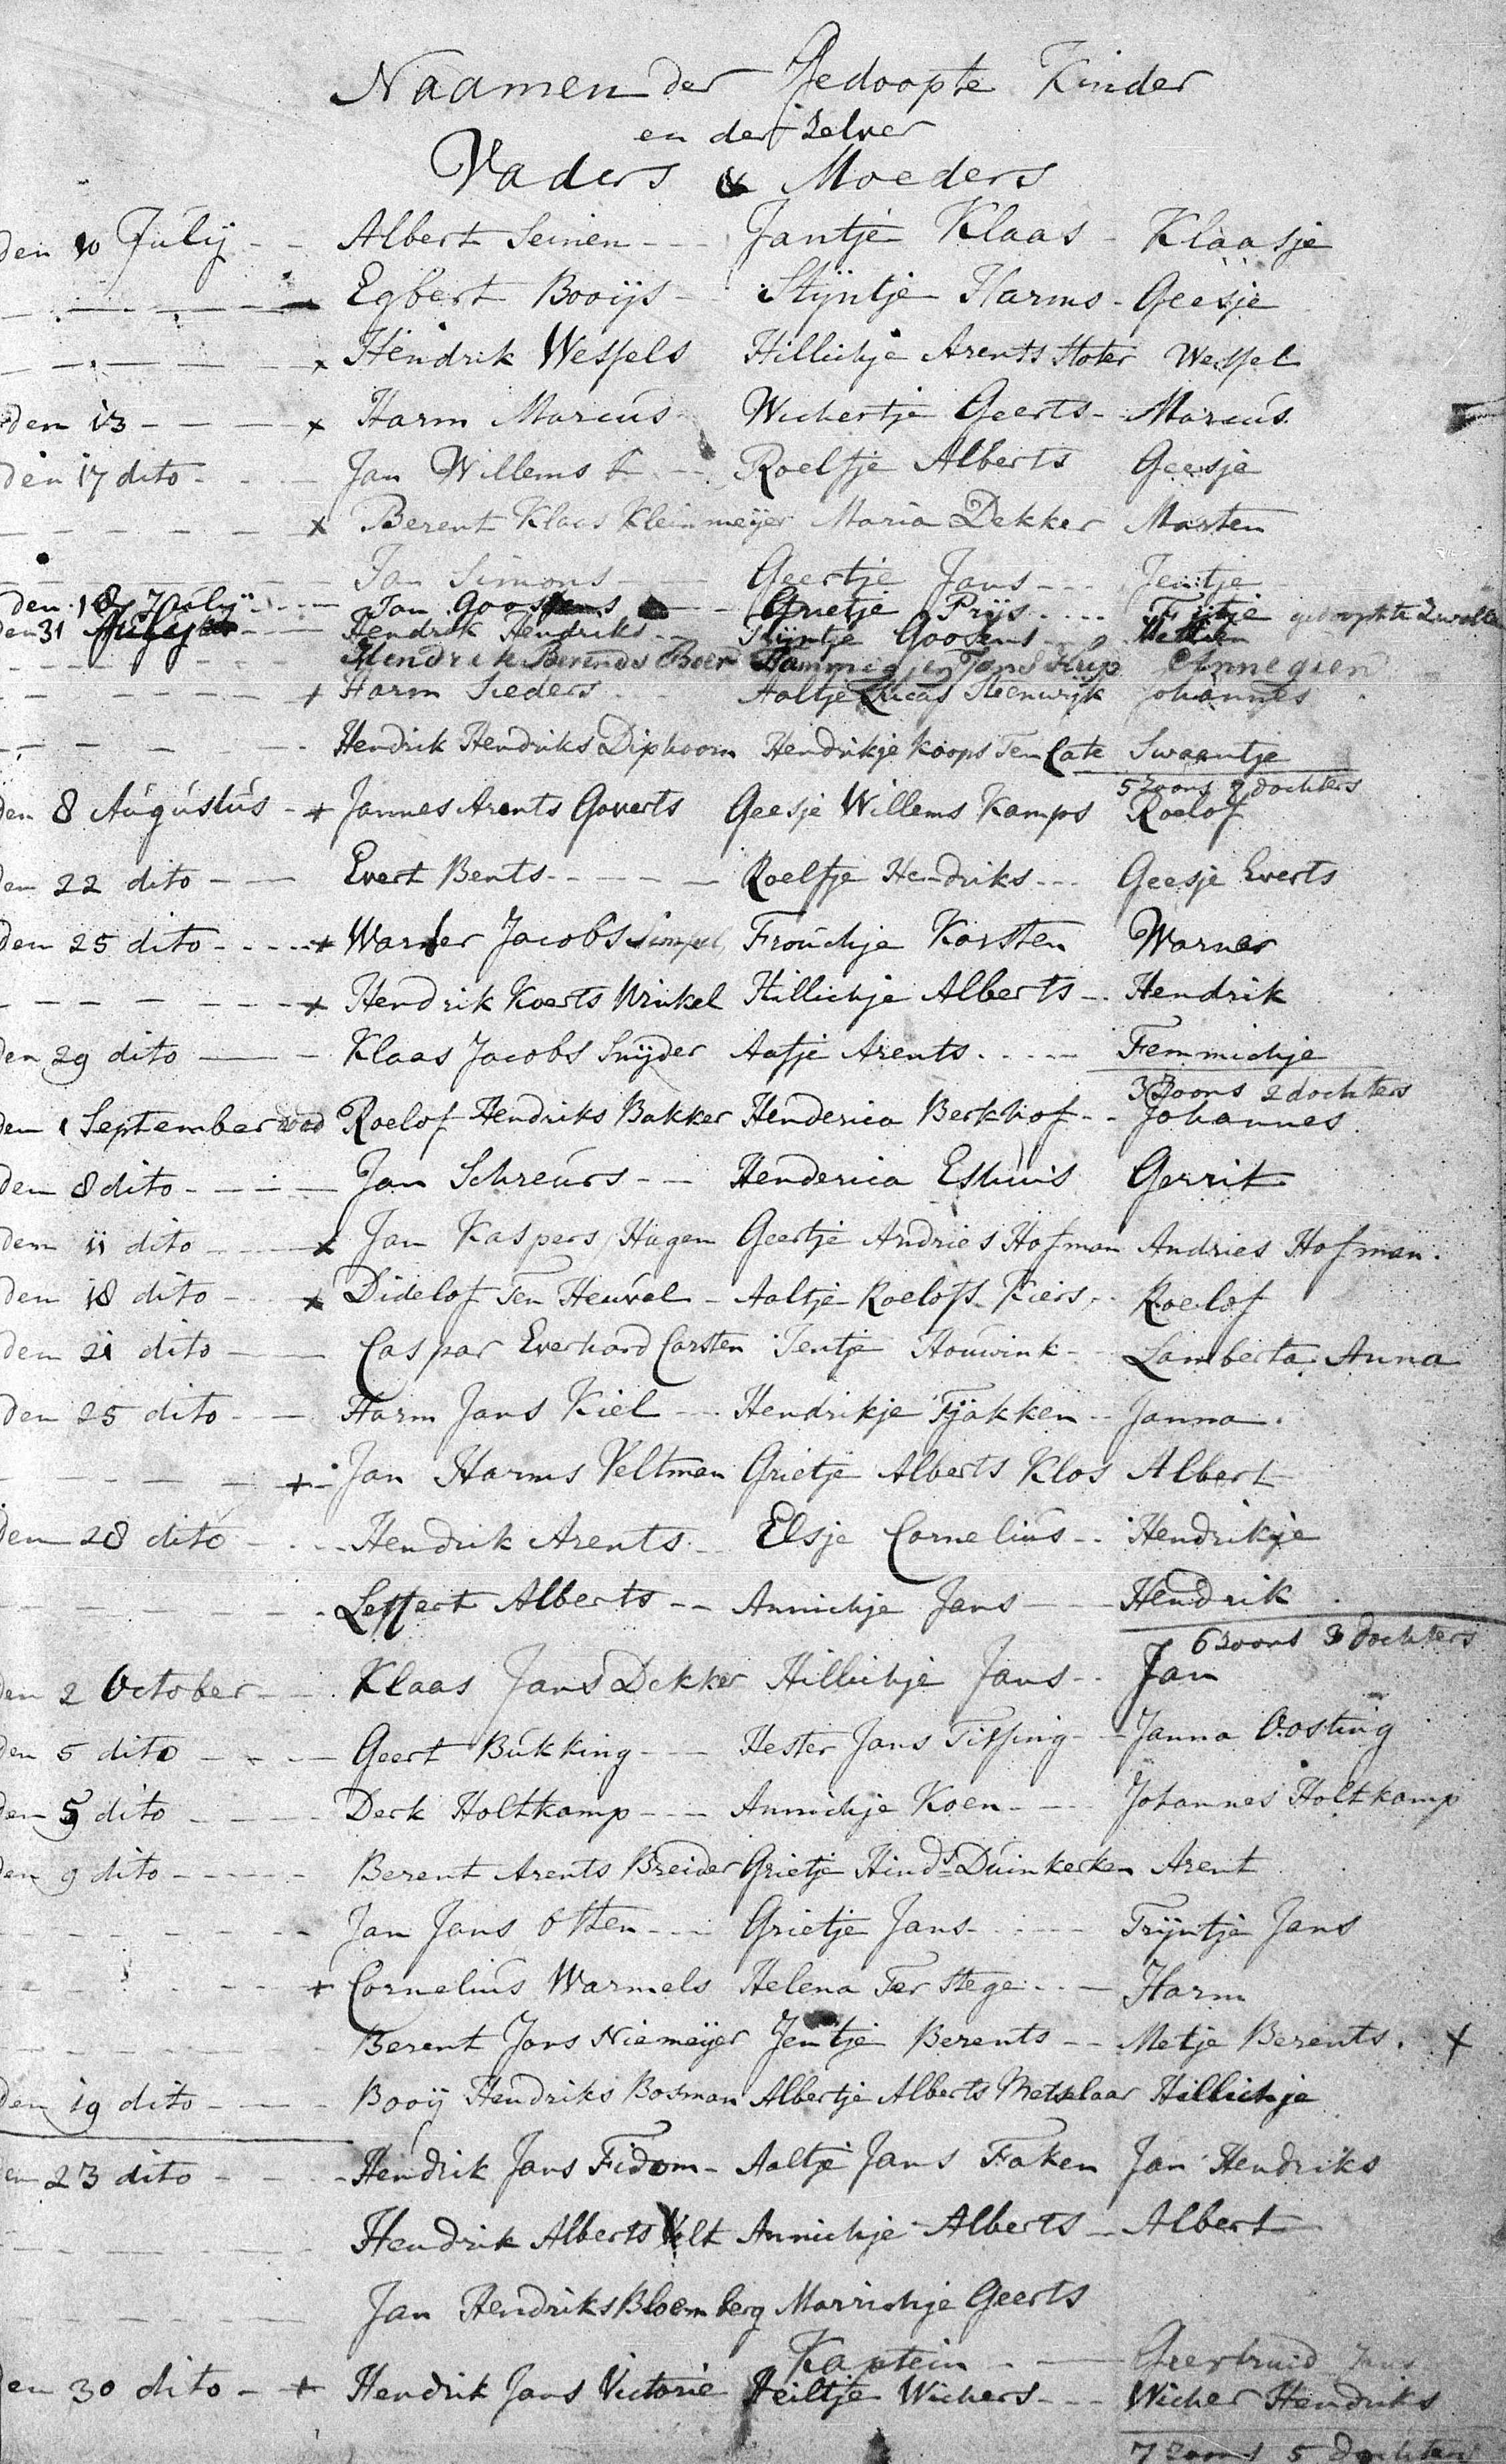 Naamen der Gedoopte Kinder
en der zelver
Vaders & Moeders
den 10 Julij - - Albert Seinen - - - Jantje Klaas - Klaasje
Egbert Booijs - Stijntje Harms - Geesje
x Hendrik Wessels Hillichje Arents Stoter Wessel
den 13 - - - x Harm Marcus Wichertje Geerts - Marcus
den 17 dito - - - Jan Willems Roelfje Alberts Geesje
x Berent Klaas Kleinmeijer Maria Dekker Marten
Jan Simons - - Geertje Jans - - - Jentje
den 18 Julij - - - Jan Goossens - - Grietje Prijs - - - Fijtje gedoopt te Zwolle
den 31 - - - Hendrik Hendriks - - Trijntje Goosens - -
Hendrik Berends Boer Hammigjen Jans Kup Annegien
+ Harm Sieders - - Aaltje Lucas Steenwijk Johannes
Hendrik Hendriks Diphoorn Hendrikje Koops Ten Cate Swaantje
5 zoons 9 dochters
den 8 Augustus - + Jannes Arents Goverts Geesje Willems Kamps Roelof
den 22 dito - - Evert Bents - - - - - Roelfje Hendriks - - - Geesje Everts
den 25 dito - - - + Warner Jacobs Simpel, Frouchje Karsten Warner
+ Hendrik Koerts Winkel Hillichje Alberts - - Hendrik
den 29 dito - - - Klaas Jacobs Snijder Aafje Arents - - - - Femmichje
3 zoons 2 dochters
den 1 September dood Roelof Hendriks Bakker Henderica Berkhof - - Johannes
den 8 dito - - - - Jan Schreurs - - Henderica Eshuis Gerrit
den 11 dito - - - x Jan Kaspers Hagen Geertje Andries Hofman Andries Hofman.
den 18 dito - - x Didelof Ten Heuvel - Aaltje Roelofs Kiers, - Roelof
den 21 dito - - - Caspar Everhard Carsten Jentje Houwink - - Lamberta Anna
den 25 dito - - - Harm Jans Kiel - - - Hendrikje Tjakken - - Janna.
+ - Jan Harms Veltman Grietje Alberts Klos Albert
den 28 dito - - - Hendrik Arents - - Elsje Cornelius - - Hendrikje
Leffert Alberts - - Annichje Jans - - - Hendrik
6 zoons 3 dochters
den 2 October - - Klaas Jans Dekker Hillichje Jans - - Jan
den 5 dito - - - Geert Bukking - - - Hester Jans Tissing - - Janna Oosting
den 5 dito - - - Derk Holtkamp - - - Annichje Koen - - - Johannes Holtkamp
den 9 dito - - - - Berent Arents Breider Grietje Hinds Duinkerken Arent
Jan Jans Otten - - - Grietje Jans - - - - Trijntje Jans
+ Cornelius Warmels Helena Ter Stege - - - Harm
Berent Jans Niemeijer Jentje Berents - - Metje Berents. x
den 19 dito - - - - Booij Hendriks Bosman Albertje Alberts Metselaar Hillichje
den 23 dito - - - - Hendrik Jans Fidom - Aaltje Jans Faken Jan Hendriks
Hendrik Alberts Velt Annichje Alberts - Albert
Jan Hendriks Bloemberg Marrichje Geerts
Kaptein - - - Geertruid Jans
den 30 dito - + Hendrik Jans Victorie Heiltje Wichers - - - Wicher Hendriks
7 zoons 5 dochters